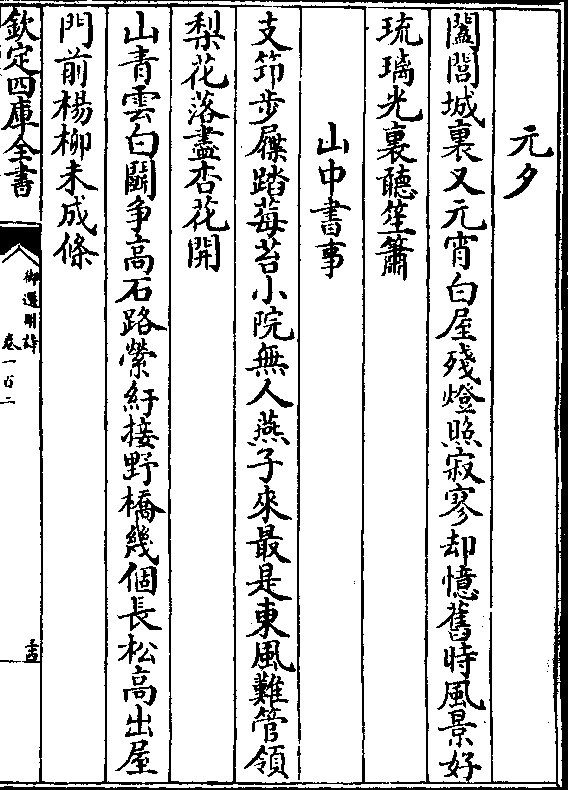 元夕
闔閭城裏又元宵白屋殘燈照寂寥却憶舊時風景好
琉璃光裏聽笙簫
山中書事
支笻步屧踏莓苔小院無人燕子來最是東風難管領
梨花落盡杏花開
山青雲白鬬争高石路縈紆接野橋幾個長松高出屋
門前楊柳未成條
欽定四庫全書
御選明詩
卷一百二